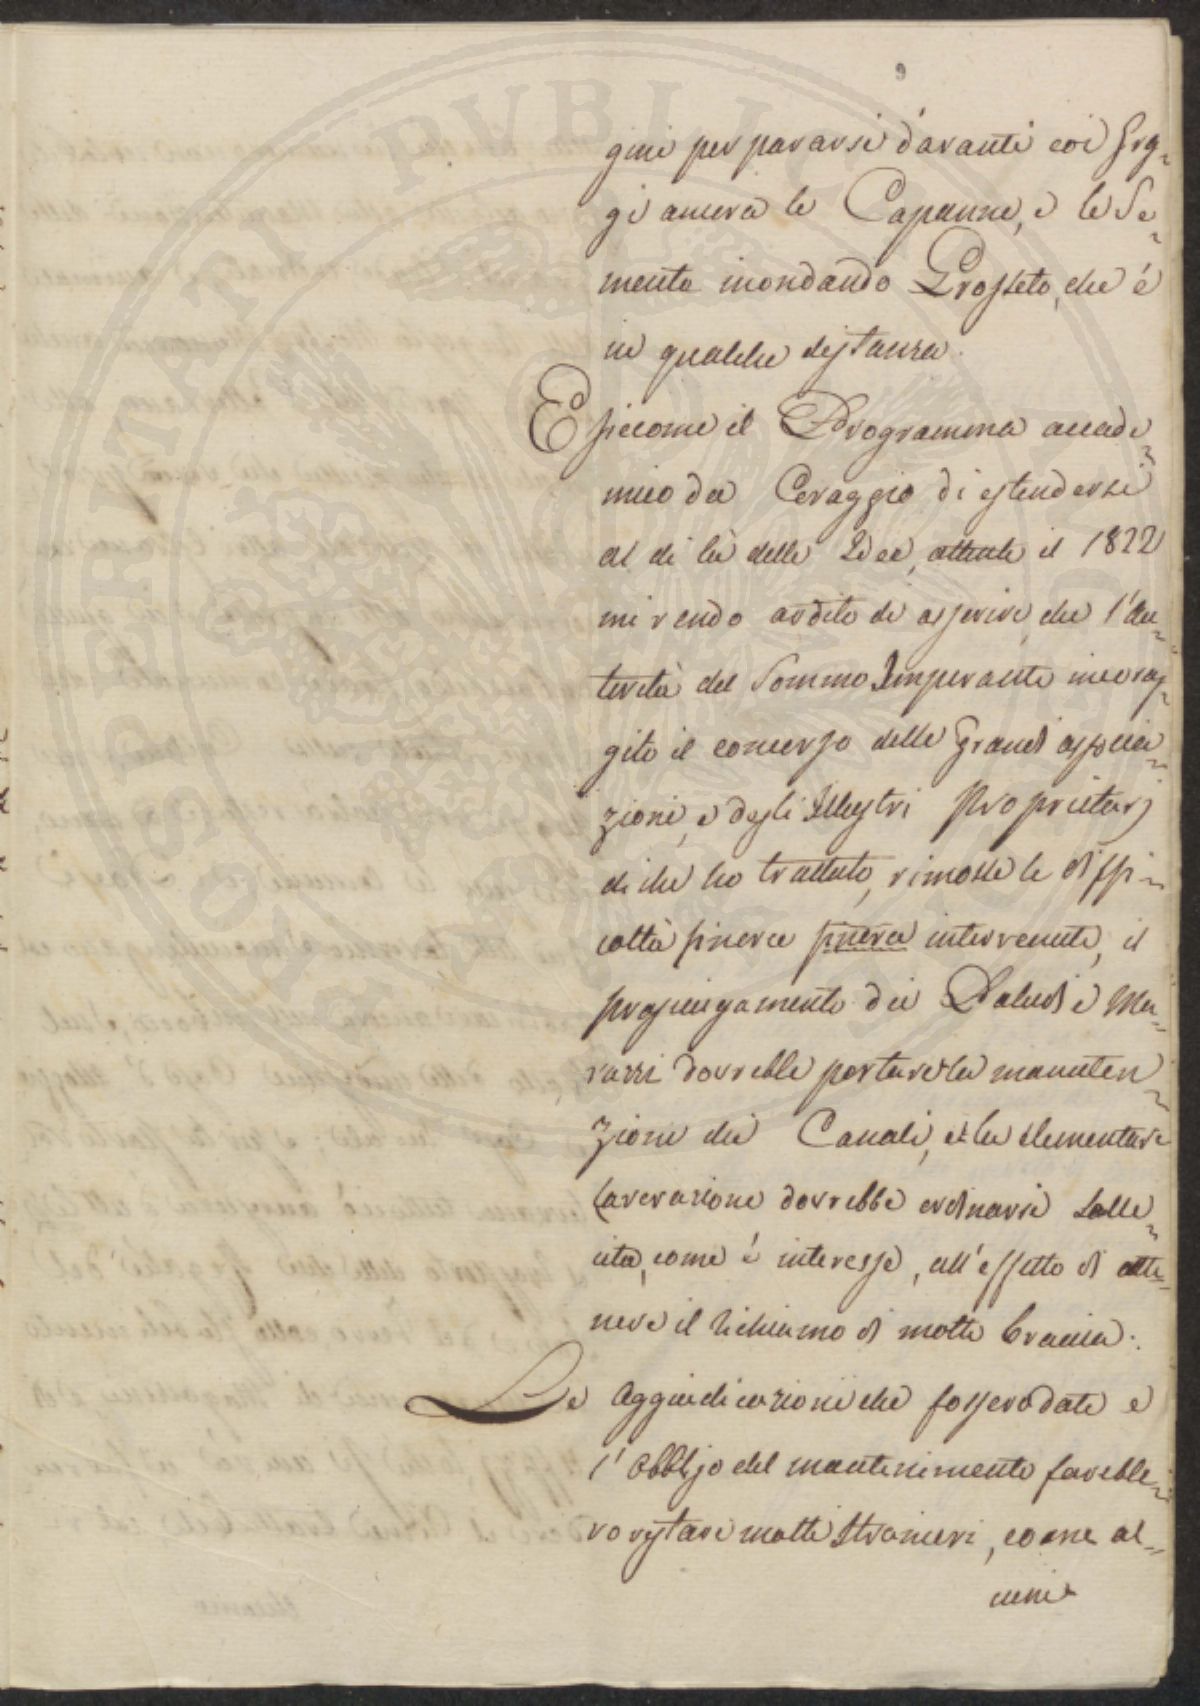 9
gini per pararsi davanti coi Greg-
gi ancora le Capanne, e le Se-
menta inondando Grosseto, che é
in qualche distanza.
E siccome il Programma accade
mico da Coraggio di estendersi
al di là delle Idee, attuate il 1822
mi rendo ardito di asserire, che l'Au-
torità del Sommo Imperante incorag-
gito il concorso delle Grandi associa-
zioni, e degli Illustri Proprietarj
di che ho trattato, rimosse le diffi-
coltà finora finora intervenute, il
prosciugamento dei Paludi e Ma-
razzi dovrebbe portare la manuten
zione dei Canali, e la elementare
lavorazione dovrebbe ordinarsi solle
cita, come é interesse, all'effetto di otte-
nere il richiamo di molte braccia.
Le Aggiudicazioni che fossero date e
l'obbligo del mantenimento farebbe-
ro restare molti Stranieri, come al-
cuni
PVBLICIS